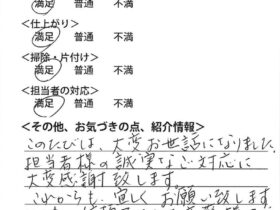 満足 普通 不満
<仕上がり>
満足 普通 不満
<掃除・片付け>
満足 普通 不満
<担当者の対応>
満足 普通 不満
<その他、お気づきの点、紹介情報>
このたびは、大変お世話になりました。
担当者様の誠実なご対応に
大変感謝致します。
これからも、宜しくお願い致します